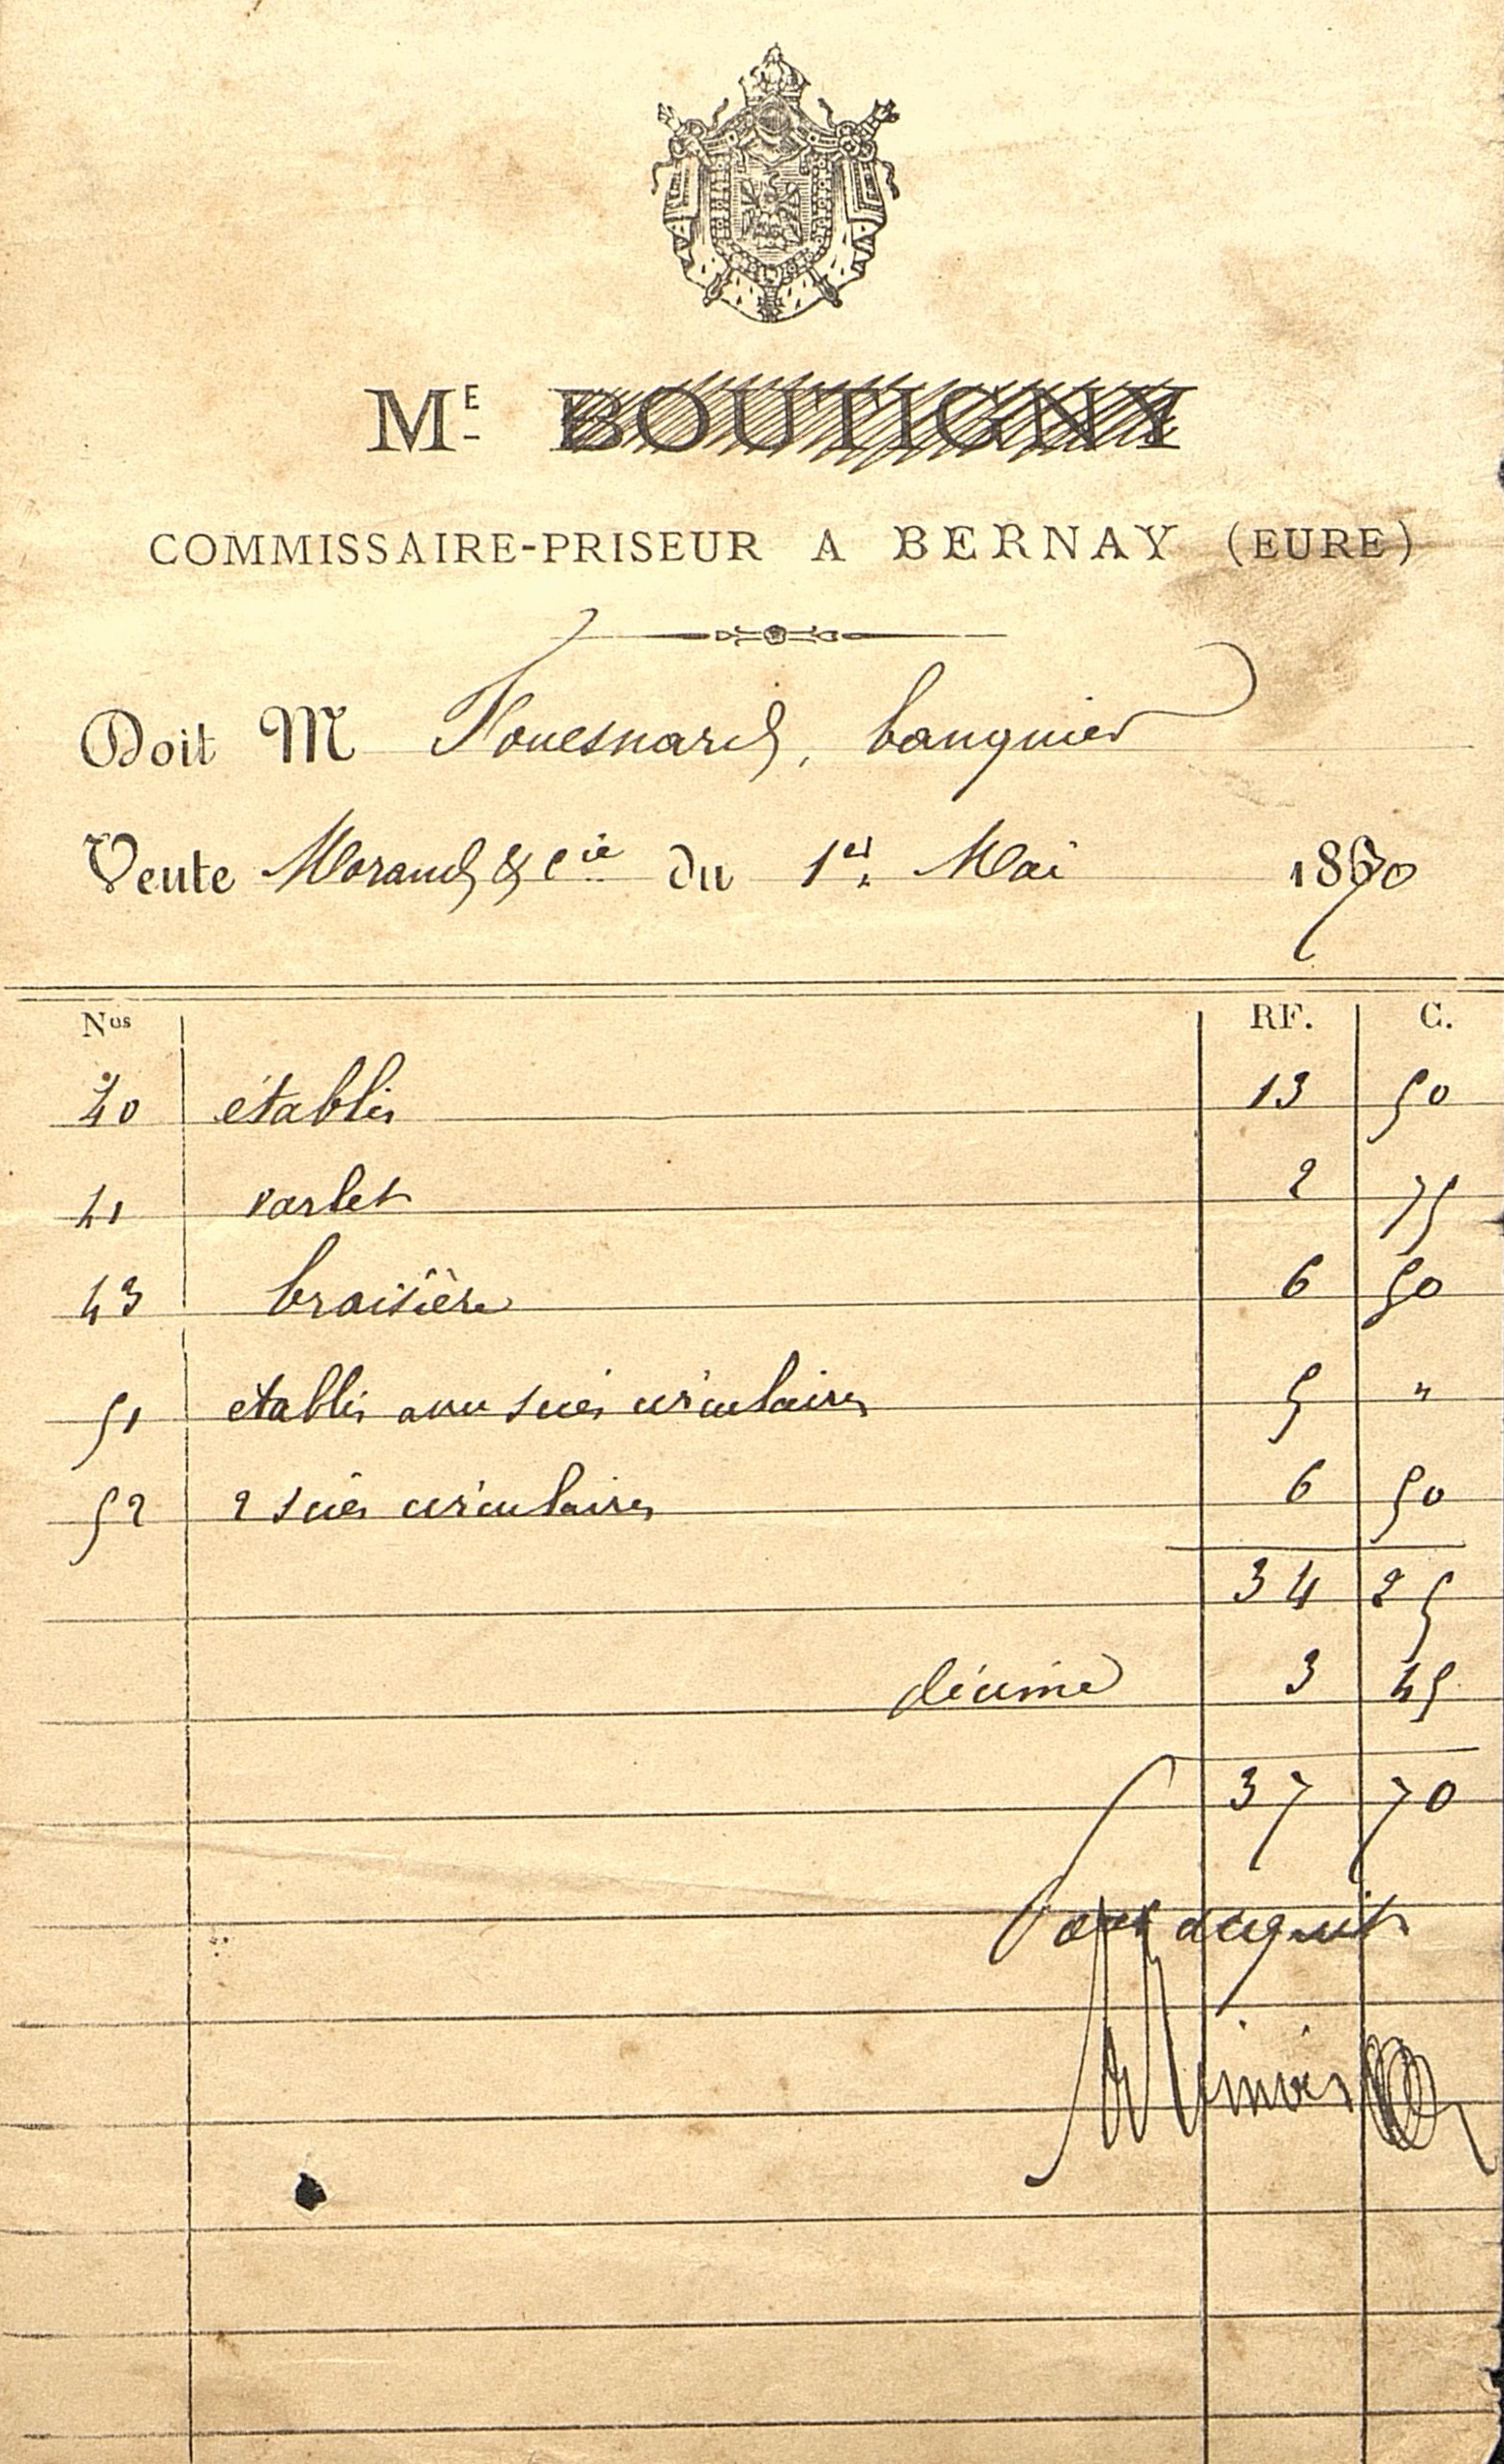 ME BOUTIGNY
COMMISSAIRE-PRISEUR A BERNAY (EURE)
Doit M Fouesnard, banquier
Vente Morand & Cie du 1er Mai 1870
Nos RF. C.
40 établis 13 50
41 varlet 2 75
43 braisière 6 50
51 établis avec scies circulaires 5 "
52 2 scies circulaires 6 50
34 25
décime 3 45
37 70
Pour acquit